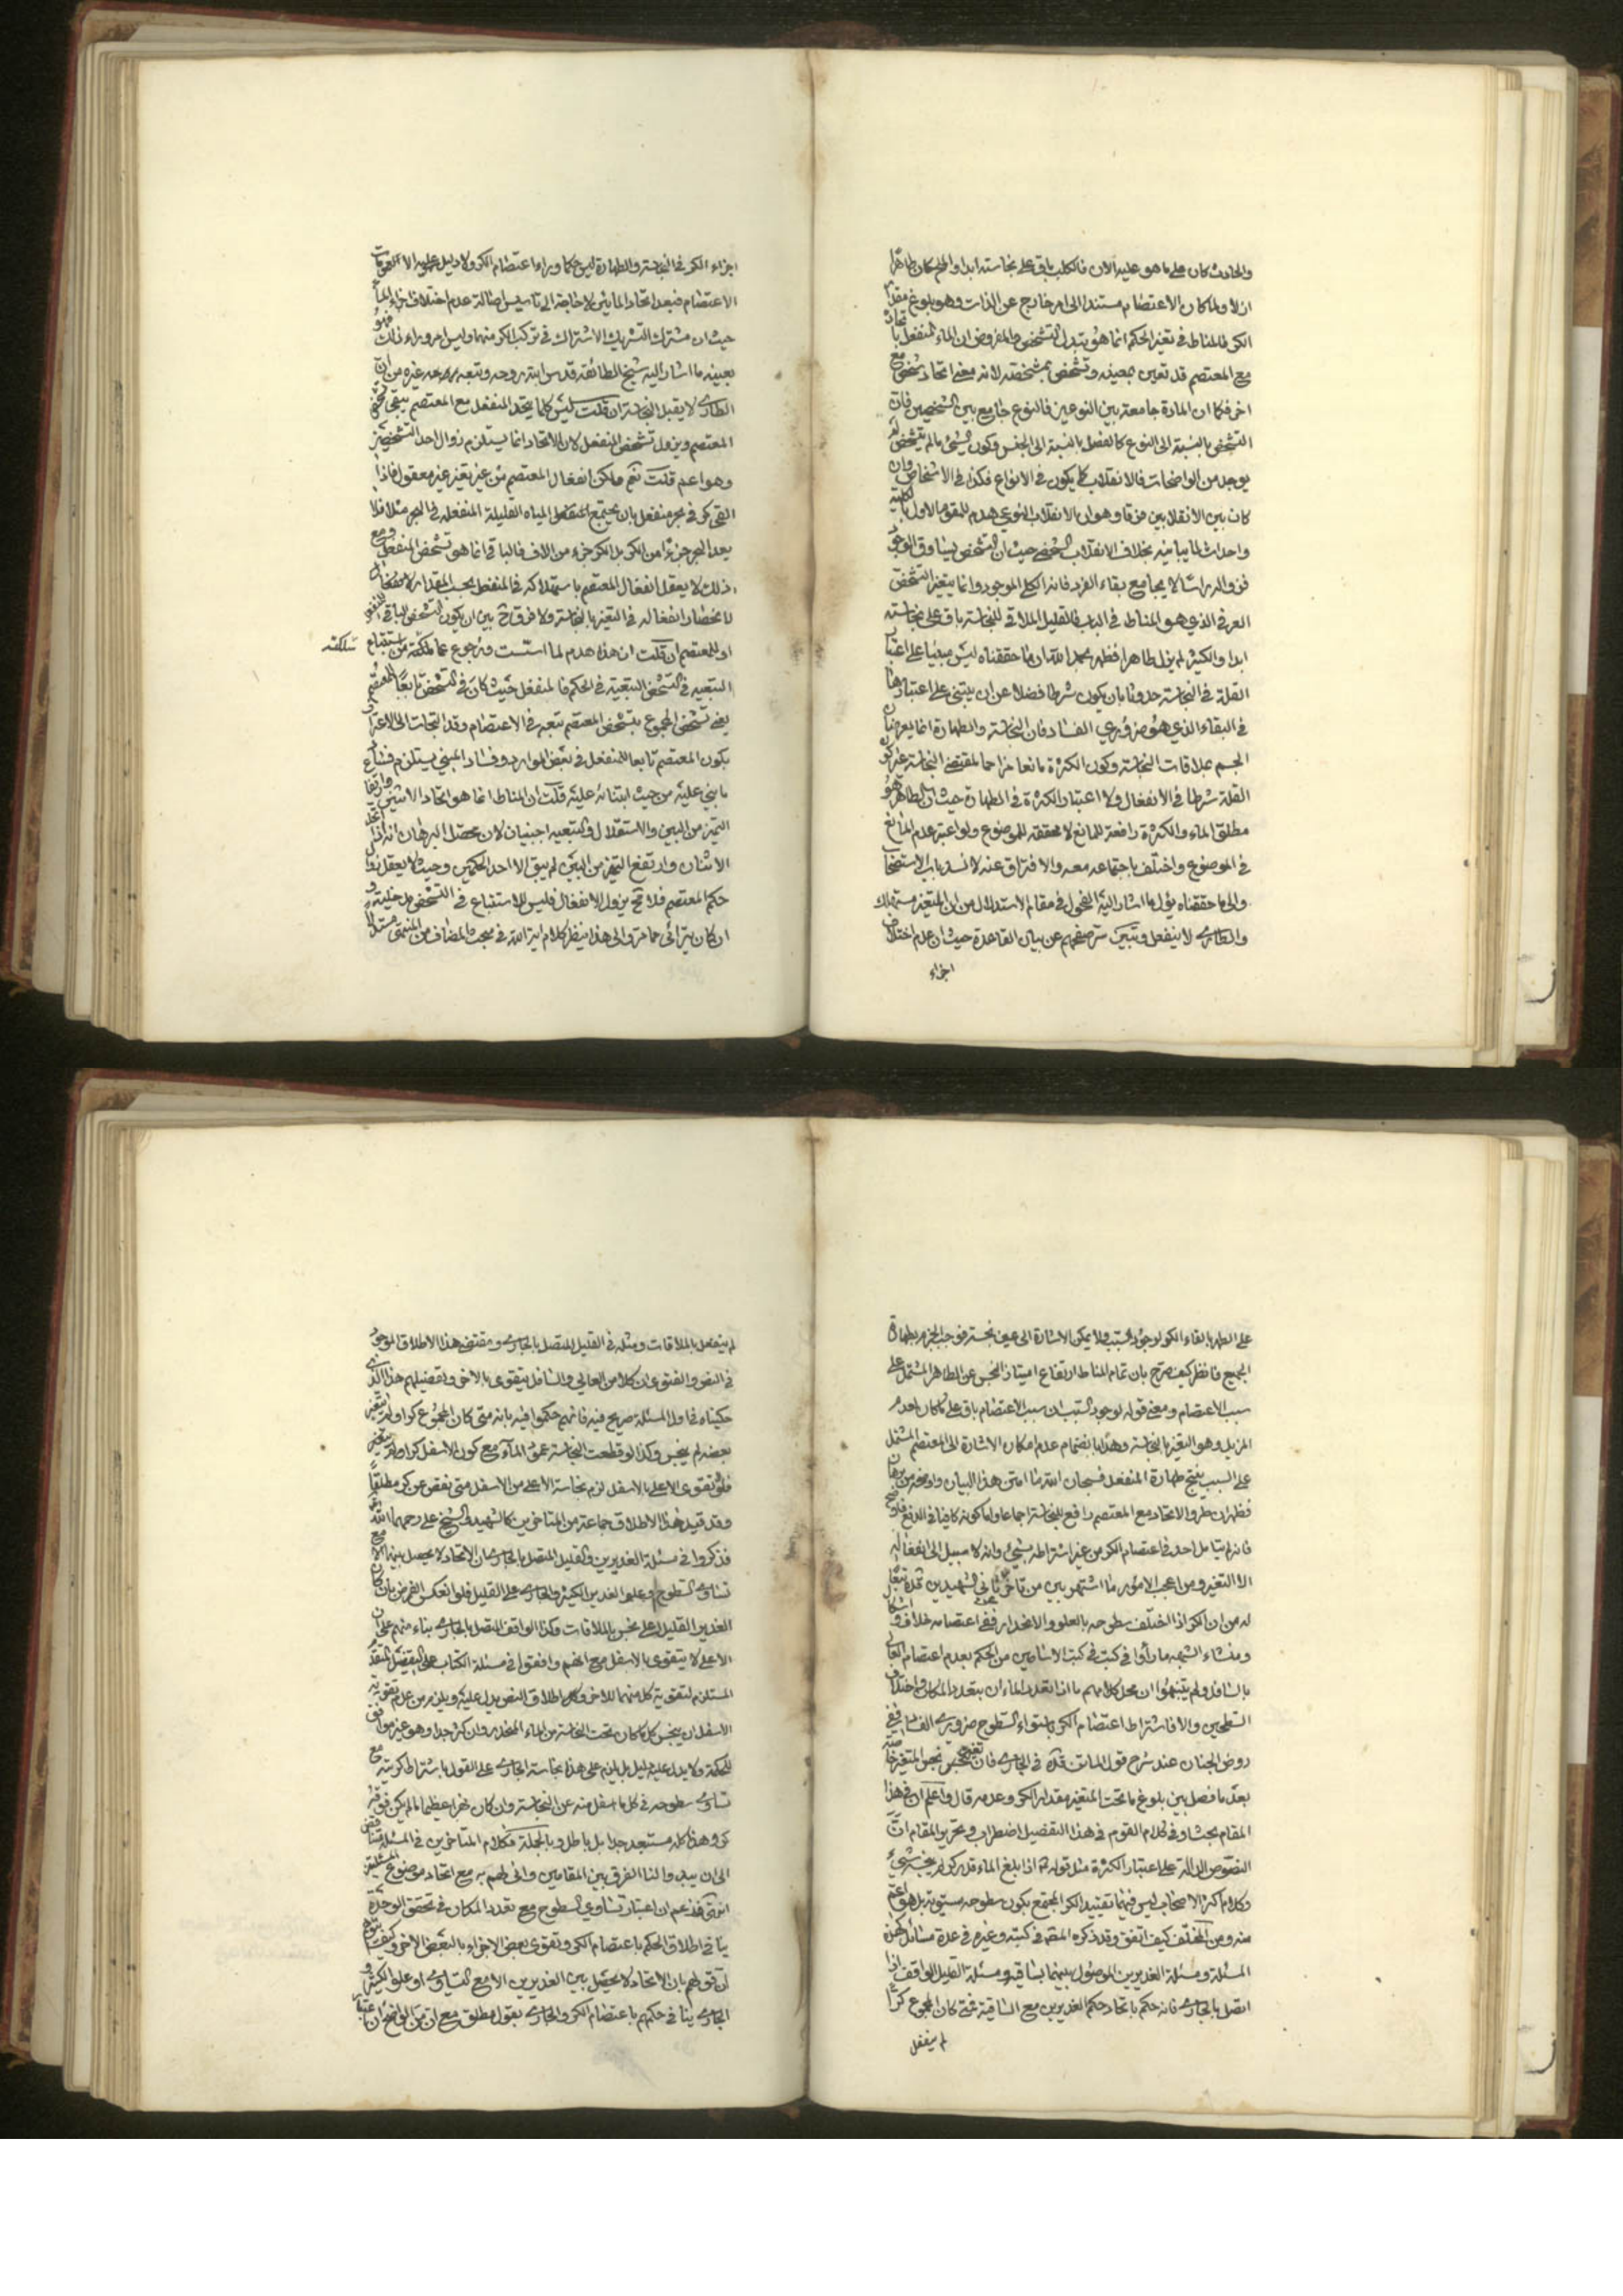 والحادث كان على ما هو عليه الان فالكلب باق على نجاسته ابدا والماء كان طاهرا
ازلا ولما كان الاعتصام مستندا الى امر خارج عن الذات وهو بلوغ مقدار
الكر فالمناط في تغير الحكم انما هو تبدل التشخص والمفروض ان الماء المنفعل باتحاده
مع المعتصم قد تعين بعينه وتشخص بمشخصته لانه معنى اتحاد شخص مع
اخر فكما ان المادة جامعة بين النوعين فالنوع جامع بين الشخصين فان
التشخص بالنسبة الى النوع كالفصل بالنسبة الى الجنس وكون الشيء ما لم يتشخص لم
يوجد من الواضحات فالانقلاب كما يكون في الانواع فكذا في الاشخاص وان
كان بين الانقلابين فرقا وهو ان الانقلاب النوعي هدم للمقوم الاول بالكلية
واحداث لما يباينه بخلاف الانقلاب الشخصي حيث ان التشخص يساوق الوجود
فزواله راسا لا يجامع بقاء الفرد فانه الكلي الموجود وانما يتغير التشخص
العرفي الذي هو المناط في الباب فالقليل الملاقي للنجاسة باق على نجاسته
ابدا والكثير لم يزل طاهرا فظهر بحمد الله ان ما حققناه ليس مبنيا على اعتبار
القلة في النجاسة حدوثا بان يكون شرطا فضلا عن ان يبتني على اعتبارها
في البقاء الذي هو ضروري الفساد فان النجاسة والطهارة انما يعرضان
الجسم بملاقات النجاسة وكون الكثرة مانعا مزاحما لمقتضى النجاسة غير كون
القلة شرطا في الانفعال ولا اعتبار الكثرة في الطهارة حيث ان الطاهر هو
مطلق الماء والكثرة رافعة للمانع لا محققة للموضوع ولو اعتبر عدم المانع
في الموضوع واختلف باجتماعه معه والافتراق عنه لانسد باب الاستصحاب
والى ما حققناه يؤل ما اشار اليه الفحول في مقام الاستدلال من ان المتغير مستهلك
والطاري لا ينفعل وتبين سر صفحهم عن بيان القاعدة حيث ان عدم اختلاف
اجزاء
اجزاء الكر في النجاسة والطهارة ليس حكما وراء اعتصام الكر ولا دليل عليه الا عمومات
الاعتصام فبعد اتحاد المائين لا حاجة الى تاسيس اصالة عدم اختلاف اجزاء الماء
حيث ان مشترك التشريك الاشتراك في تركب الكر منهما وليس امر وراء ذلك فهو
بعينه ما اشار اليه شيخ الطائفة قدس الله روحه وتبعه غيره من ان
الطاري لا يقبل النجاسة ان قلت ليس كلما يتحد المنفعل مع المعتصم يبقى تشخص
المعتصم ويزول تشخص المنفعل لان الاتحاد انما يستلزم زوال احد التشخصين
وهو اعم قلت نعم ولكن انفعال المعتصم من غير تغير غير معقول فاذا
القي كر في بحر منفعل بان يجتمع المياه القليلة المنفعلة في البحر مثلا فلا
يعد البحر جزءا من الكر بل الكر جزء من الاف فالباقي انما هو تشخص المنفعل ومع
ذلك لا يعقل انفعال المعتصم باستهلاكه في المنفعل بحسب المقدار لا
لانحصار انفعاله في التغير بالنجاسة ولا فرق ح بين ان يكون التشخص الباقي للمنفعل
او للمعتصم ان قلت ان هذا هدم لما اسست ورجوع عما سلكته من استتباع
سلكته
التبعية في التشخص التبعية في الحكم فالمنفعل حيث كان في التشخص تابعا للمعتصم
يعني تشخص المجموع بتشخص المعتصم تبعه في الاعتصام وقد التجات الى الاعتراف
بكون المعتصم تابعا للمنفعل في بعض الموارد وفساد المبني يستلزم فساد
ما بني عليه من حيث ابتنائه عليه قلت ان المناط انما هو اتحاد الاثنين وارتفاع
التميز من البين والاستقلال والتبعية اجنبيان لان محصل البرهان انه اذا اتحد
الاثنان وارتفع التميز من البين لم يبق الا احد الحكمين وحيث لا يعقل زوال
حكم المعتصم فلا مح يزول الانفعال فليس للاستتباع في التشخص مدخلية و
ان كان يترائى والى هذا ينظر كلام اية الله في مبحث المضاف من المنتهى مستدلا
على الطهر بالقاء الكر لوجود السبب ولا يمكن الاشارة الى عين نجسة فوجب الجزم بطهارة
الجميع فانظر كيف صرح بان تمام المناط ارتفاع امتياز النجس عن الطاهر المشتمل على
سبب الاعتصام ومعنى قوله لوجود السبب ان سبب الاعتصام باق على ما كان لعدم
المزيل وهو التغير بالنجاسة وهذا بانضمام عدم امكان الاشارة الى المعتصم المشتمل
على السبب ينتج طهارة المنفعل فسبحان الله ما امتن هذا البيان واوضحه من برهان
فظهر ان طرو الاتحاد مع المعتصم رافع للنجاسة اجماعا واما كونه كافيا في الدفع فاوضح
فانه لم يتامل احد في اعتصام الكر من غير اشتراطه بشيء وانه لا سبيل الى انفعاله
الا التغير ومن اعجب الامور ما اشتهر بين من تاخر عن ثاني الشهيدين قده تبعا
له من ان الكر اذا اختلف سطوحه بالعلو والانحدار ففي اعتصامه خلاف واشكال
ومنشاء الشبهة ما رأوا في كتب الاساطين من الحكم بعدم اعتصام العالي
بالسافل ولم يتنبهوا ان محل كلامهم ما اذا تعدد الماء ان بتعدد المكان واختلاف
السطحين والا فاشتراط اعتصام الكر باستواء السطوح ضروري الفساد ففي
روض الجنان عند شرح قول الماتن قده في الجاري فان تغير بعضه نجس المتغير خاصة
بعد ما فصل بين بلوغ ما تحت المتغير مقدار الكر وعدمه قال واعلم ان في هذا
المقام بحثا وفي كلام القوم في هذا التفصيل اضطراب وتحرير المقام ان
النصوص الدالة على اعتبار الكثرة مثل قوله ع اذا بلغ الماء قدر كر لم ينجسه شيء
وكلام اكثر الاصحاب ليس فيهما تقييد الكر المجتمع بكون سطوحه مستوية بل هو اعم
منه ومن المختلف كيف اتفق وقد ذكره المصنف في كتبه وغيره في عدة مسائل كهذه
المسئلة ومسئلة الغديرين الموصول بينهما بساقية ومسئلة القليل الواقف اذا
اتصل بالجاري فانه حكم باتحاد حكم الغديرين مع الساقية فمتى كان المجموع كرا
لم ينفعل
لم ينفعل بالملاقات ومثله في القليل المتصل بالجاري ومقتضى هذا الاطلاق الموجود
في النص والفتوى ان كلا من العالي والسافل يتقوى بالاخر وتفصيلهم هذا الذي
حكيناه في اول المسئلة صريح فيه فانهم حكموا فيه بانه متى كان المجموع كرا ولم يتغير
بعضه لم ينجس وكذا لو قطعت النجاسة عمود الماء مع كون الاسفل كرا ولم يتغير
فلو تقوى الاعلى بالاسفل لزم نجاسة الاعلى من الاسفل متى نقص عن كر مطلقا
وقد قيد هذا الاطلاق جماعة من المتاخرين كالشهيد والشيخ علي رحمهما الله
فذكروا في مسئلة الغديرين والقليل المتصل بالجاري ان الاتحاد لا يحصل بينهما الا مع
تساوي السطوح او علو الغدير الكثير والجاري على القليل فلو انعكس الفرض بان كان
الغدير القليل اعلى نجس بالملاقات وكذا الواقف المتصل بالجاري بناء منهم على ان
الاعلى لا يتقوى بالاسفل مع انهم وافقوا في مسئلة الكتاب على التفصيل المتقدم
المستلزم لتقوية كل منهما للاخر واطلاق النص يدل عليه ويلزم من عدم تقوية
الاسفل ان ينجس كل ما كان تحت النجاسة من الماء المنحدر وان كثر جدا وهو غير موافق
للحكمة ولا يدل عليه دليل بل يلزم على هذا نجاسة الجاري على القول باشتراط كريته مع
تساوي سطوحه في كل ما سفل منه عن النجاسة وان كان نهرا عظيما ما لم يكن فوقه
كر وهذا كله مستبعد جدا بل باطل وبالجملة فكلام المتاخرين في المسئلة متناقض
الى ان يبدوا لنا الفرق بين المقامين وانى لهم به مع اتحاد موضوع المسئلتين
انتهى فزعم ان اعتبار تساوي السطوح مع تعدد المكان في تحقق الوحدة
ينافي اطلاق الحكم باعتصام الكر وتقوى بعض الاجزاء بالبعض الاخر وكيف يتوهم
ان قولهم بان الاتحاد لا يحصل بين الغديرين الا مع التساوي او علو الكثير و
الجاري ينافي حكمهم باعتصام الكر والجاري بقول مطلق مع ان من الواضح ان اعتبار